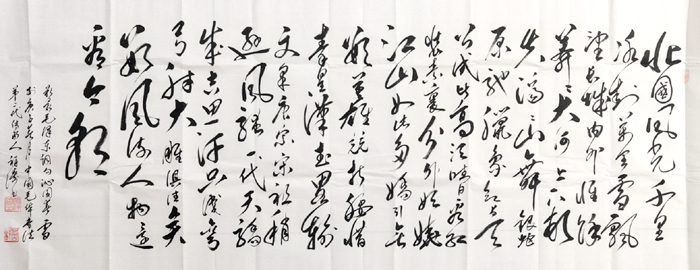 北國風光千里
冰封万里雪飘
望长城内外惟馀
莽莽大河上下顿
失滔滔山舞银蛇
原驰蜡象欲与天
公试比高须晴日看红
装素裹分外妖娆
江山如此多娇引无
数英雄竞折腰惜
秦皇漢武略输
文采唐宗宋祖稍
逊风骚一代天骄
成吉思汗只识弯
弓射大雕俱往矣
数风流人物还
看今朝
毛泽东词句沁园春雪
中國毛体书法
代传承人